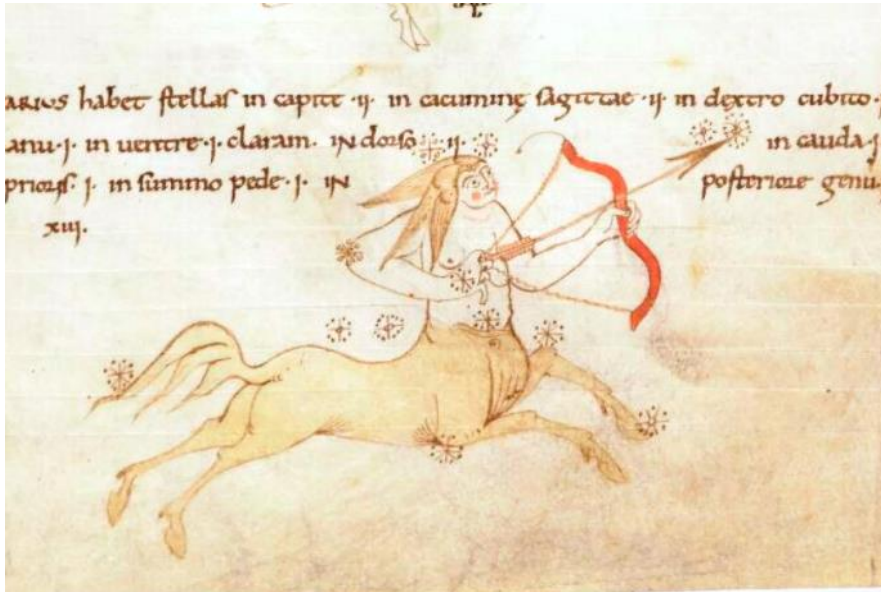 ARIUS habet stellas in capite ·ii· in cacumine sagittae ·ii· in dextro cubito ·i
anu ·i· in uentre ·i· claram. IN dorso ·ii· in cauda ·i
prioris ·i· in summo pede ·i· IN posteriore genu
xiii.